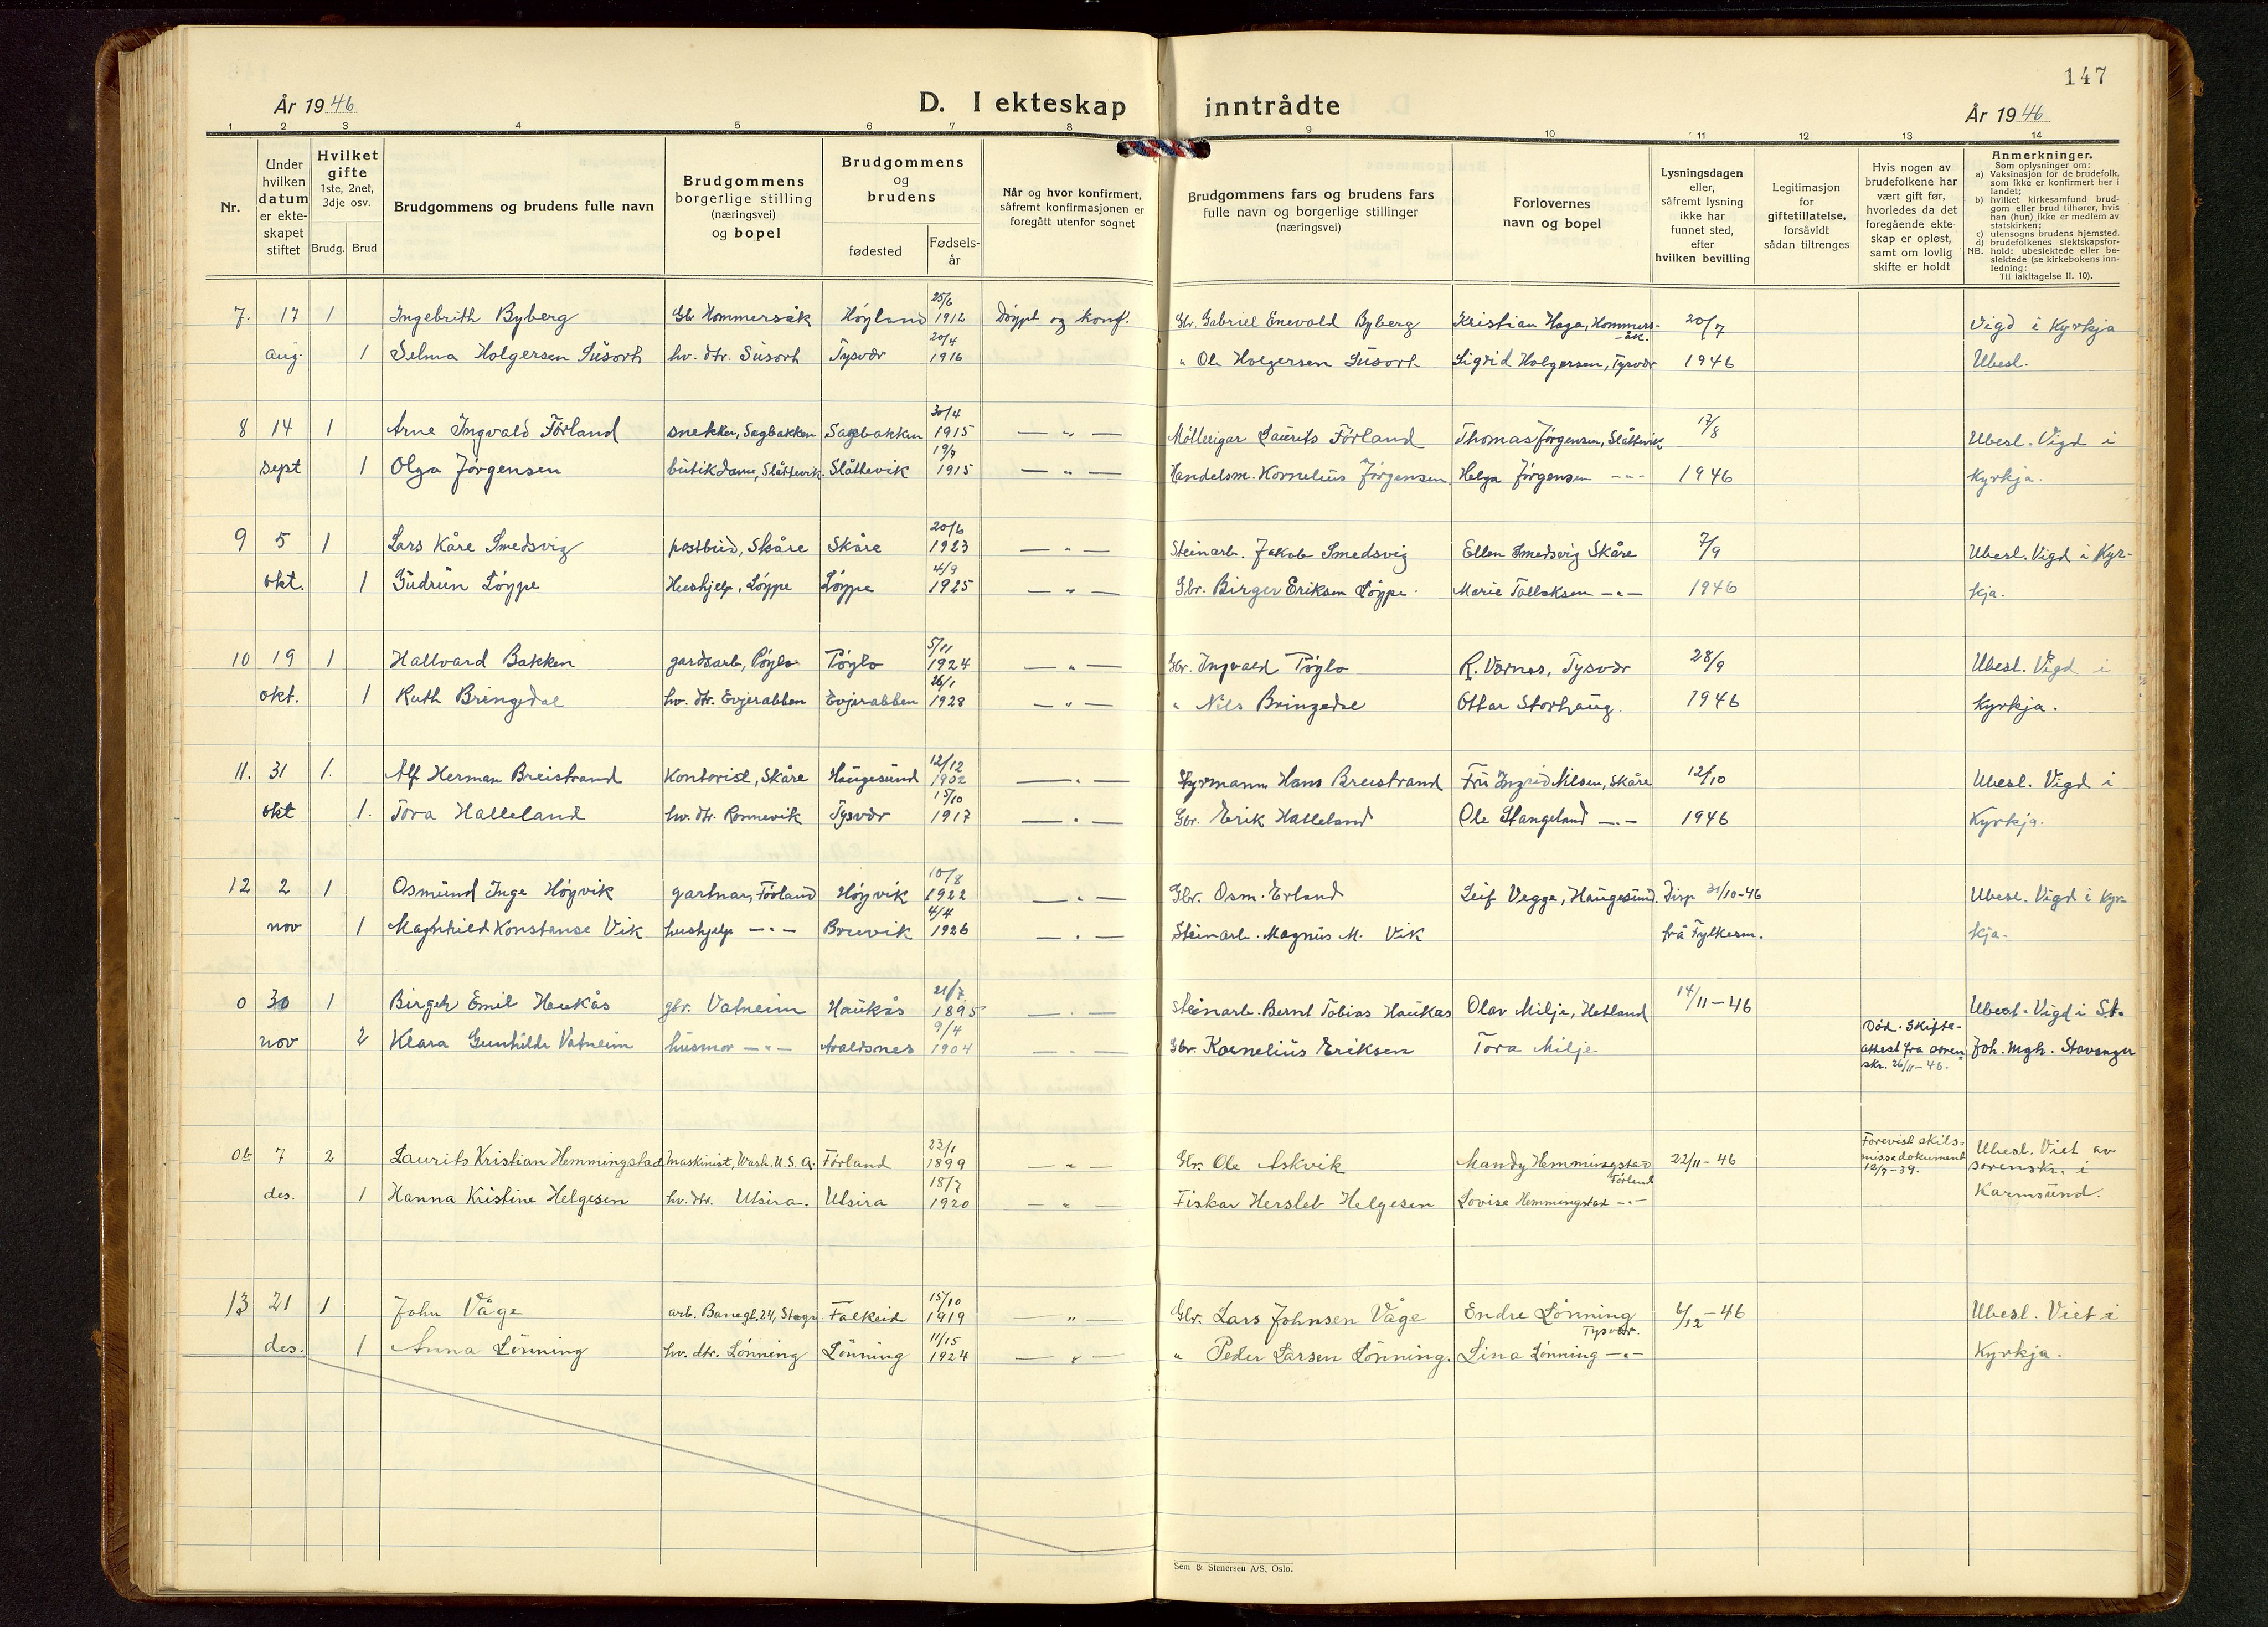 147
År 1946
D. I ekteskap inntrådte
År 1946
1 2 3 4 5 6 7 8 9 10 11 12 13 14
Nr.
Under hvilken datum er ekteskapet stiftet
Hvilket gifte 1ste, 2net, 3dje osv.
Brudg. Brud
Brudgommens og brudens fulle navn
Brudgommens borgerlige stilling (næringsvei) og bopel
Brudgommens og brudens
fødested
Fødsels-år
Når og hvor konfirmert, såfremt konfirmasjonen er foregått utenfor sognet
Brudgommens fars og brudens fars fulle navn og borgerlige stillinger (næringsvei)
Forlovernes navn og bopel
Lysningsdagen eller, såfremt lysning ikke har funnet sted, efter hvilken bevilling
Legitimasjon for giftetillatelse, forsåvidt sådan tiltrenges
Hvis nogen av brudefolkene har vært gift før, hvorledes da det foregående ekteskap er opløst, samt om lovlig skifte er holdt
Anmerkninger.
Som oplysninger om:
a) Vaksinasjon for de brudefolk, som ikke er konfirmert her i landet;
b) hvilket kirkesamfund brudgom eller brud tilhører, hvis han (hun) ikke er medlem av statskirken;
c) utensogns brudens hjemsted.
d) brudefolkenes slektskapsforhold: ubeslektede eller beslektede (se kirkebokens innledning:
NB.
Til iakttagelse II. 10).
7. 17 1 Ingebrith Byberg Gbr Hommersåk Høyland 25/6 1912 Døypt og konf. Gbr. Gabriel Enevold Byberg Kristian Haga, Hommersåk. 20/7 Vigd i Kyrkja
aug. 1 Selma Holgersen Susort hv. dtr. Susort Tysvær 20/4 1916 " Ole Holgersen Susort Sigrid Holgersen, Tysvær 1946 Ubesl.
8 14 1 Arne Ingvald Førland snekker, Sagbakken Sagbakken 30/4 1915 — " — Laurits Førland Thomas Jørgensen, Slåttevik 17/8 Ubesl. Vigd i
sept 1 Olga Jørgensen butikdame, Slåttevik Slåttevik 1915 — " — Handelsm. Kornelius Jørgensen Helga Jørgensen -"- 1946 Kyrkja.
9 5 1 Lars Kåre Smedsvig postbud, Skåre Skåre 20/6 1923 — " — Steinarb. Jakob Smedsvig Ellen Smedsvig Skåre 7/9 Ubesl. Vigd i Kyr-
okt. 1 Gudrun Løyppe Hushjelp, Løyppe Løyppe 4/9 1925 — " — Gbr. Birger Eriksen Løyppe. Marie Tollaksen -"- 1946 kja.
10 19 1 Hallvard Bakken gardsarb, Pøylo Pøylo 5/11 1924 — " — Gbr. Ingvald Pøylo R. Varnes, Tysvær 28/9 Ubesl. Vigd i
okt. 1 Ruth Bringedal hv. dtr. Evjerabben Evjerabben 26/1 1928 — " — " Nils Bringedal Ottar Storhaug. 1946 Kyrkja.
11. 31 1. Alf Herman Breistrand Kontorist, Skåre Haugesund 12/12 1902 — " — Styrmann Hans Breistrand Fru Ingrid Nilsen, Skåre 12/10 Ubesl. Vigd i
okt 1. Tora Halleland hv. dtr. Rønnevik Tysvær 15/10 1917 — " — Gbr. Erik Halleland Ole Stangeland -"- 1946 Kyrkja.
12 2 1 Osmund Inge Høyvik gartnar, Førland Høyvik 10/8 1922 — " — Gbr. Osm. Erland Leif Vegge, Haugesund. Disp 31/10-46 Ubesl. Vigd i Kyr-
nov 1 Magnhild Konstanse Vik hushjelp -"- Bruvik 4/4 1926 — " — Steinarb. Magnus M. Vik frå Fylkesm. kja.
0 30 1 Birger Emil Haukås gbr. Vatneim Haukås 21/7 1895 — " — Steinarb. Bernt Tobias Haukås Olav Milje, Hetland 14/11-46 Ubesl. Vigd i St.
nov 2 Klara Gunhilde Vatneim husmor -"- Avaldsnes 9/4 1904 — " — Gbr. Kornelius Eriksen Tora Milje Død. Skifteattest fra sorenskr. 26/11-46. Joh. mgh. Stavanger
0b 7 2 Laurits Kristian Hemmingstad Maskinist, Wash. U.S.A. Førland 23/1 1899 — " — Gbr. Ole Askvik Mandy Hemmingstad Førland 22/11-46 Forevist skilsmissedokument 12/7-39. Ubesl. Viet av sorenskr. i
des. 1 Hanna Kristine Helgesen hv. dtr. Utsira. Utsira 18/7 1920 — " — Fiskar Hersleb Helgesen Lovise Hemmingstad -"- Karmsund.
13 21 1 John Våge arb. Banegt. 24, Falkeid 15/10 1919 — " — Gbr. Lars Johnsen Våge Endre Lønning Tysvær. 6/12-46 Ubesl. Viet i
des. 1 Anna Lønning hv. dtr. Lønning Lønning 11/15 1924 — " — " Peder Larsen Lønning. Lina Lønning -"- Kyrkja.
Sem & Stenersen A/S, Oslo.